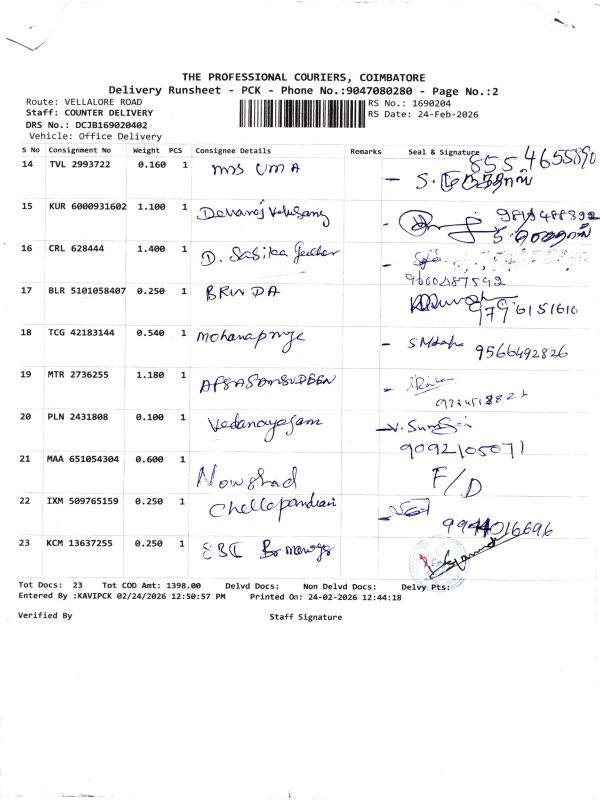 THE PROFESSIONAL COURIERS, COIMBATORE
Delivery Runsheet - PCK - Phone No.:9047080280 - Page No.:2
Route: VELLALORE ROAD
RS No.: 1690204
Staff: COUNTER DELIVERY
RS Date: 24-Feb-2026
DRS No.: DCJB169020402
Vehicle: Office Delivery
S No Consignment No Weight PCS Consignee Details Remarks Seal & Signature
14 TVL 2993722 0.160 1 mrs UMA 855 4655890
15 KUR 6000931602 1.100 1 Devaraj
16 CRL 628444 1.400 1 D. Sasika
9600487592
17 BLR 5101058407 0.250 1 BRINDA 9796151610
18 TCG 42183144 0.540 1 mohanapriya 9566492826
19 MTR 2736255 1.180 1
20 PLN 2431808 0.100 1 Vedanayagam
9092105071
21 MAA 651054304 0.600 1 Nowshad F/D
22 IXM 509765159 0.250 1 Chellapandian
9944016696
23 KCM 13637255 0.250 1
Tot Docs: 23 Tot COD Amt: 1398.00 Delvd Docs: Non Delvd Docs: Delvy Pts:
Entered By :KAVIPCK 02/24/2026 12:50:57 PM Printed On: 24-02-2026 12:44:18
Verified By Staff Signature